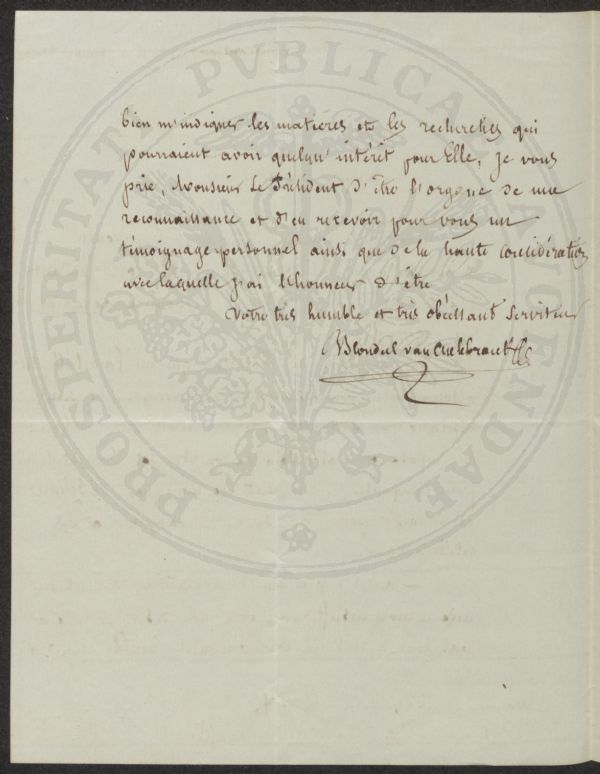 PROSPERITATI PVBLICAE AVGENDAE
bien m'indiquer les matières et les recherches qui
pourraient avoir quelqu' intérêt pour Elle, Je vous
prie, Monsieur Le Président d'être l'organe de ma
reconnaissance et d'en recevoir pour vous un
témoignage personnel ainsi que de la haute considération
avec laquelle j'ai l'honneur d'être
Votre très humble et très obéissant Serviteur
Blondel van